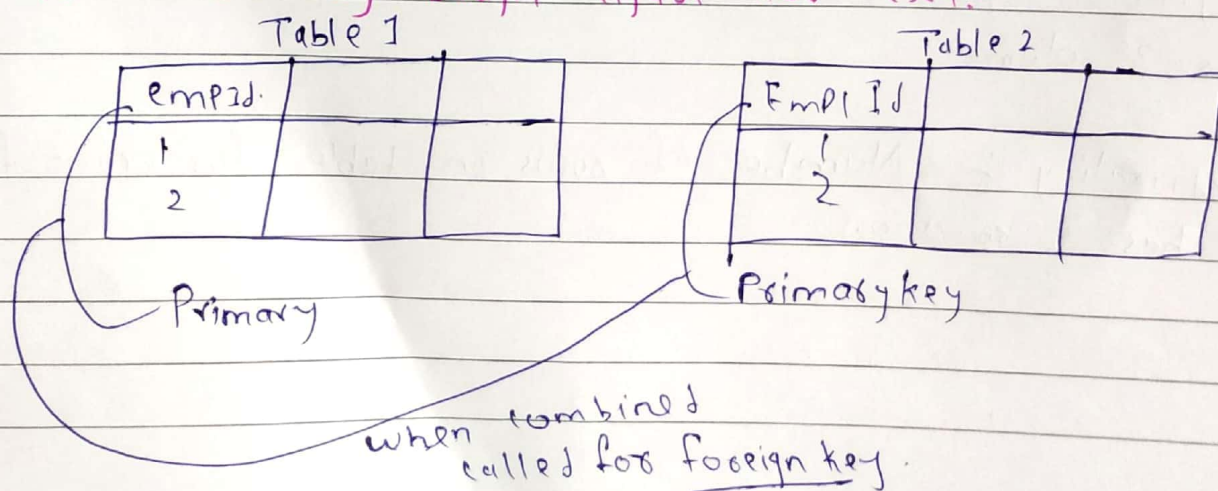 Table 1
Table 2
empId.
Empl Id
1
1
2
2
Primary
Primary key
when combined
called for foreign key.